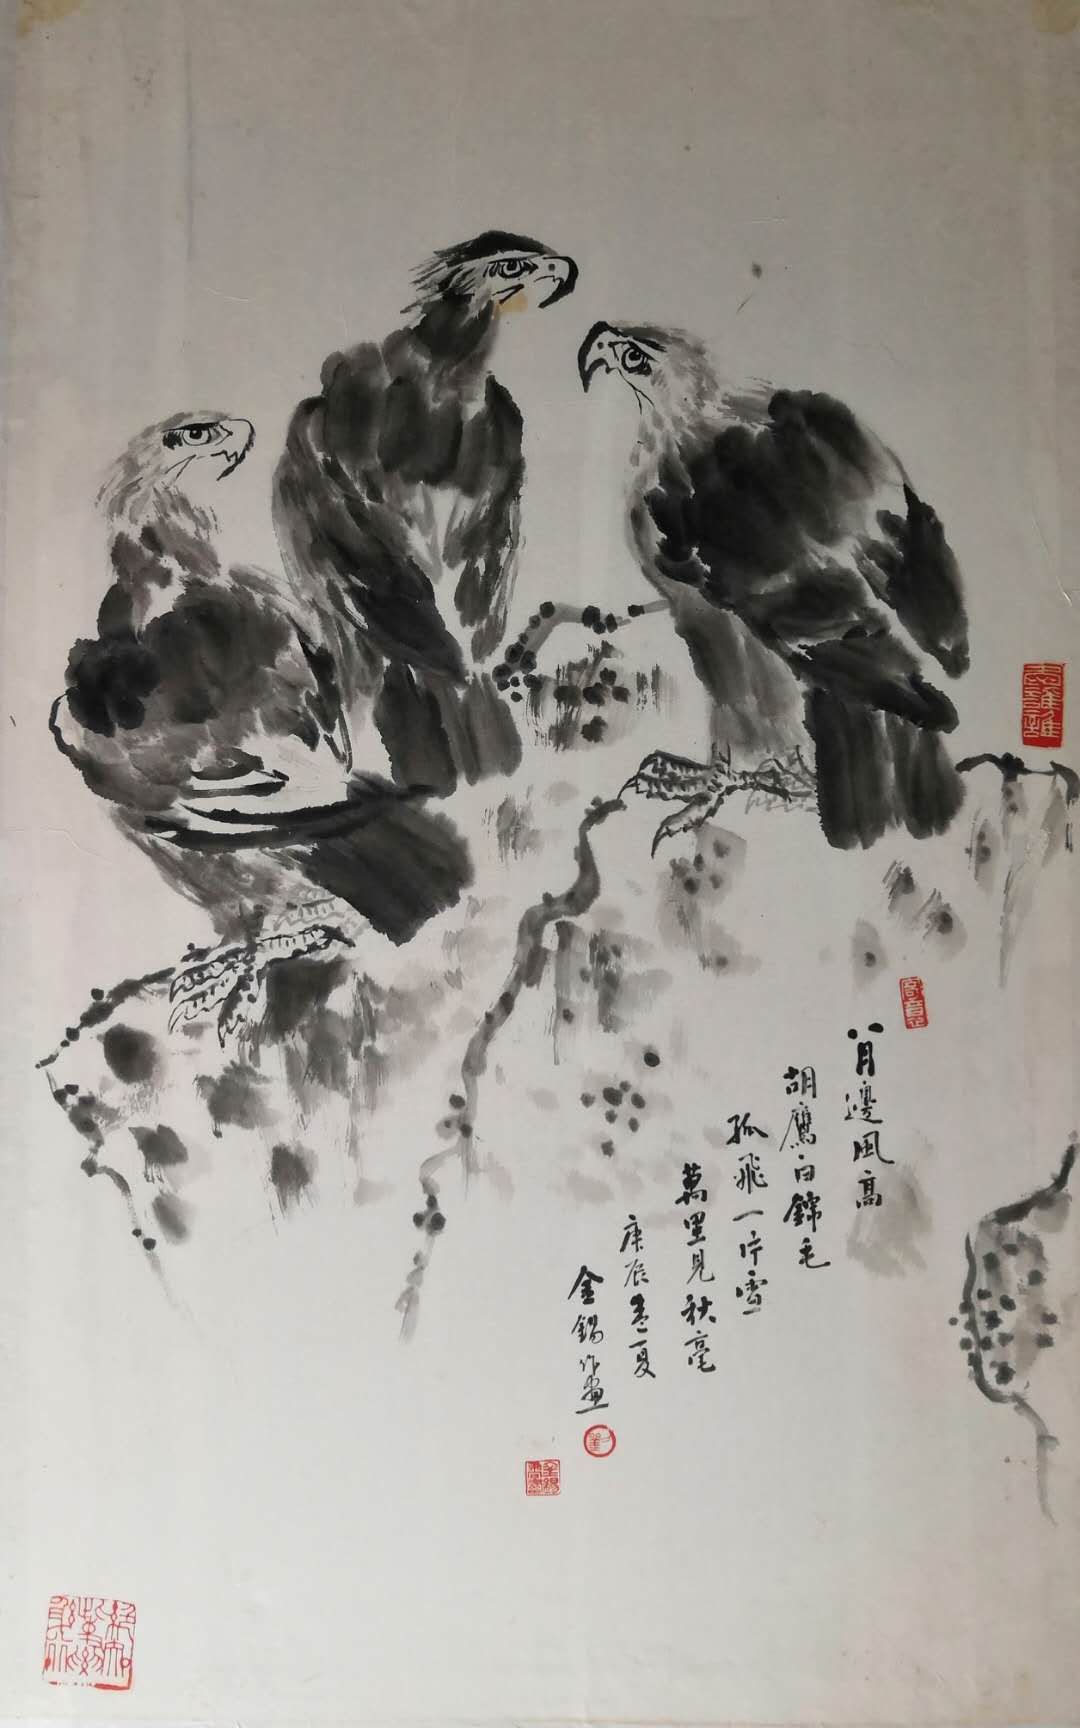 八月邊風高
胡鷹白錦毛
孤飛一片雪
萬里見秋毫
庚辰孟夏
金錫作画